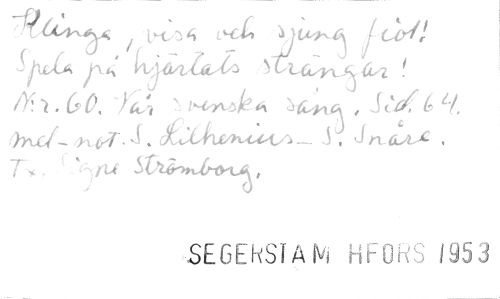 Klinga, visa och sjung fiol!
Spela på hjärtats strängar!
N:r. 60. Vår svenska sång. Sid. 64.
mel-not. S. Lilhenius - S. Snåre.
Tx. Signe Strömborg.
SEGERSTAM HFORS 1953